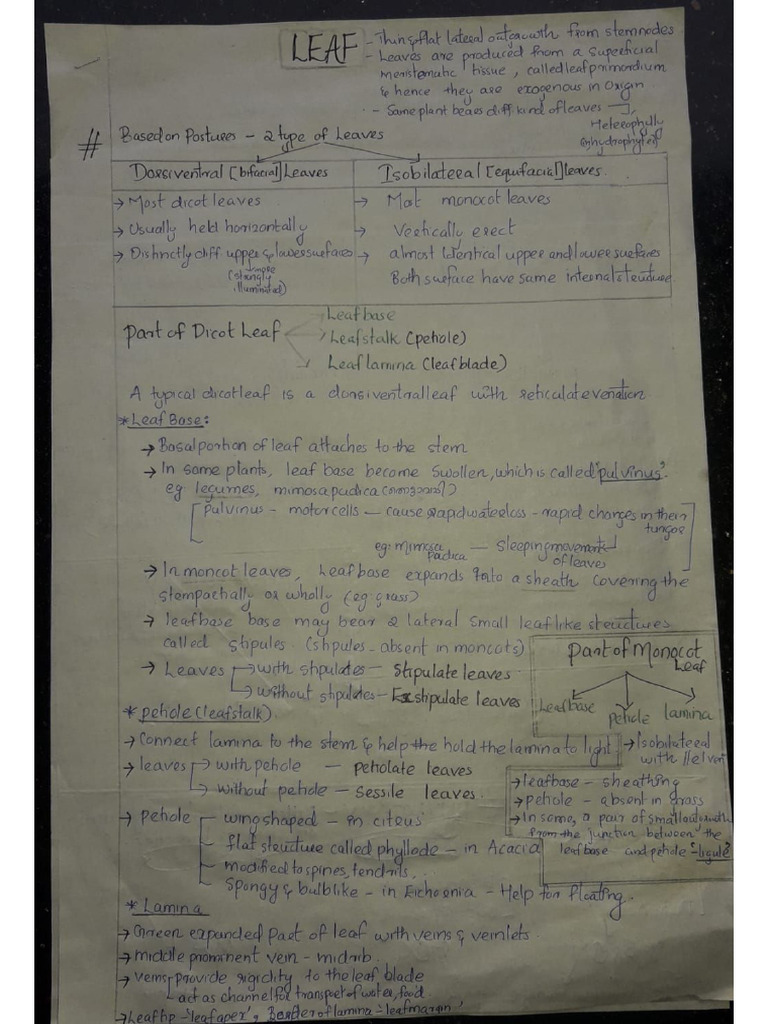 LEAF
- Thin & flat lateral outgrowth from stem nodes
- Leaves are produced from a superficial
meristematic tissue, called leaf primordium
& hence they are exogenous in Origin.
- Same plant bears diff kind of leaves
Heterophylly
# Based on Postures - 2 type of Leaves
Dorsiventral [bifacial] Leaves
→ Most dicot leaves
→ Usually held horizontally
→ Distinctly diff upper & lower surfaces
(more strongly illuminated)
Isobilateral [equifacial] leaves.
→ Most monocot leaves
→ Vertically erect
→ almost Identical upper and lower surfaces
Both surface have same internal structure.
Part of Dicot Leaf
Leaf base
Leafstalk (petiole)
Leaf lamina (leaf blade)
A typical dicot leaf is a dorsiventral leaf with reticulate venation
* Leaf Base:
→ Basal portion of leaf attaches to the stem
→ In some plants, leaf base become swollen, which is called 'pulvinus'.
eg: legumes, mimosa pudica
[pulvinus - motor cells - cause rapid water loss - rapid changes in their
turgor
eg: mimosa pudica - Sleeping movements of leaves]
→ In moncot leaves, Leaf base expands into a sheath covering the
stem partially or wholly (eg: grass)
→ leafbase base may bear 2 lateral small leaf like structures
called stipules. (stipules - absent in moncots)
→ Leaves
→ with stipulates - Stipulate leaves
→ without stipulates - Exstipulate leaves
Part of Monocot
Leaf
Leaf base petiole lamina
→ Isobilateral
with //el ven
→ leafbase - sheathing
→ petiole - absent in grass
→ In some, a pair of small outgrowth
from the junction between the
leafbase and petiole - "ligule"
* petiole (leafstalk)
→ Connect lamina to the stem & help the hold the lamina to light
→ leaves
→ with petiole - Petiolate leaves
→ without petiole - Sessile leaves.
→ Petiole
wing shaped - in citrus
flat structure called phyllode - in Acacia
modified to spines, tendrils,...
Spongy & bulb like - in Eichornia - Help for floating.
* Lamina
→ Green expanded part of leaf with veins & veinlets.
→ middle prominent vein - midrib.
→ veins
provide rigidity to the leaf blade
act as channel for transport of water, food
→ Leaf tip - 'leaf apex', Border of lamina - 'leaf margin'